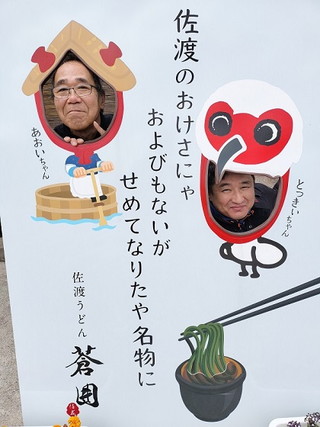 佐渡のおけさにゃ
およびもないが
せめてなりたや名物に
あおいちゃん
とっきいちゃん
佐渡うどん
蒼囲